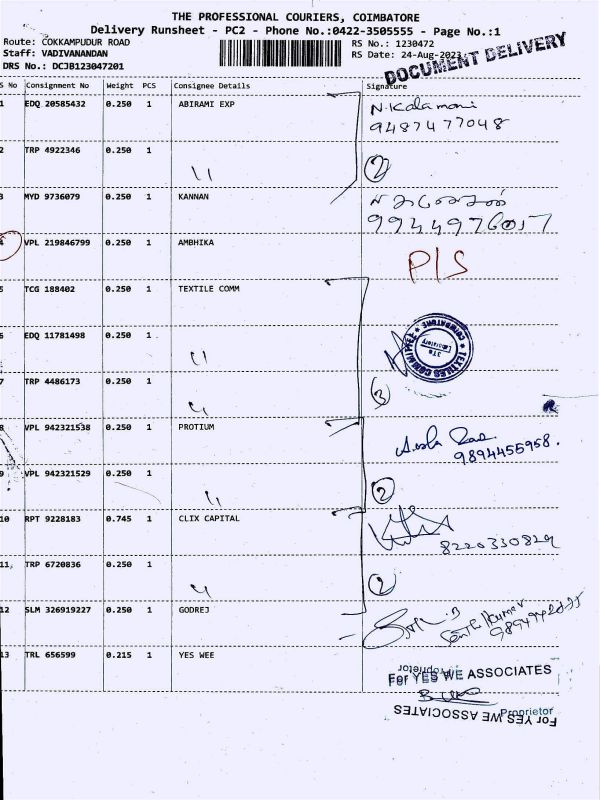 THE PROFESSIONAL COURIERS, COIMBATORE
Delivery Runsheet - PC2 - Phone No.:0422-3505555 - Page No.:1
Route: COKKAMPUDUR ROAD
RS No.: 1230472
Staff: VADIVANANDAN
RS Date: 24-Aug-2023
DRS No.: DCJB123047201
DOCUMENT DELIVERY
S No Consignment No Weight PCS Consignee Details Signature
1 EDQ 20585432 0.250 1 ABIRAMI EXP N.Kalamani
9487477048
2 TRP 4922346 0.250 1 2
3 MYD 9736079 0.250 1 KANNAN
9944976057
4 VPL 219846799 0.250 1 AMBHIKA P/S
5 TCG 188402 0.250 1 TEXTILE COMM
TEXTILES COMMITTEE
COIMBATORE
Laboratory
6 EDQ 11781498 0.250 1
7 TRP 4486173 0.250 1 3
8 VPL 942321538 0.250 1 PROTIUM
9894455958.
9 VPL 942321529 0.250 1 2
10 RPT 9228183 0.745 1 CLIX CAPITAL
8220330829
11, TRP 6720836 0.250 1 2
12 SLM 326919227 0.250 1 GODREJ
13 TRL 656599 0.215 1 YES WEE
Proprietor
For YES WE ASSOCIATES
Proprietor
For YES WE ASSOCIATES